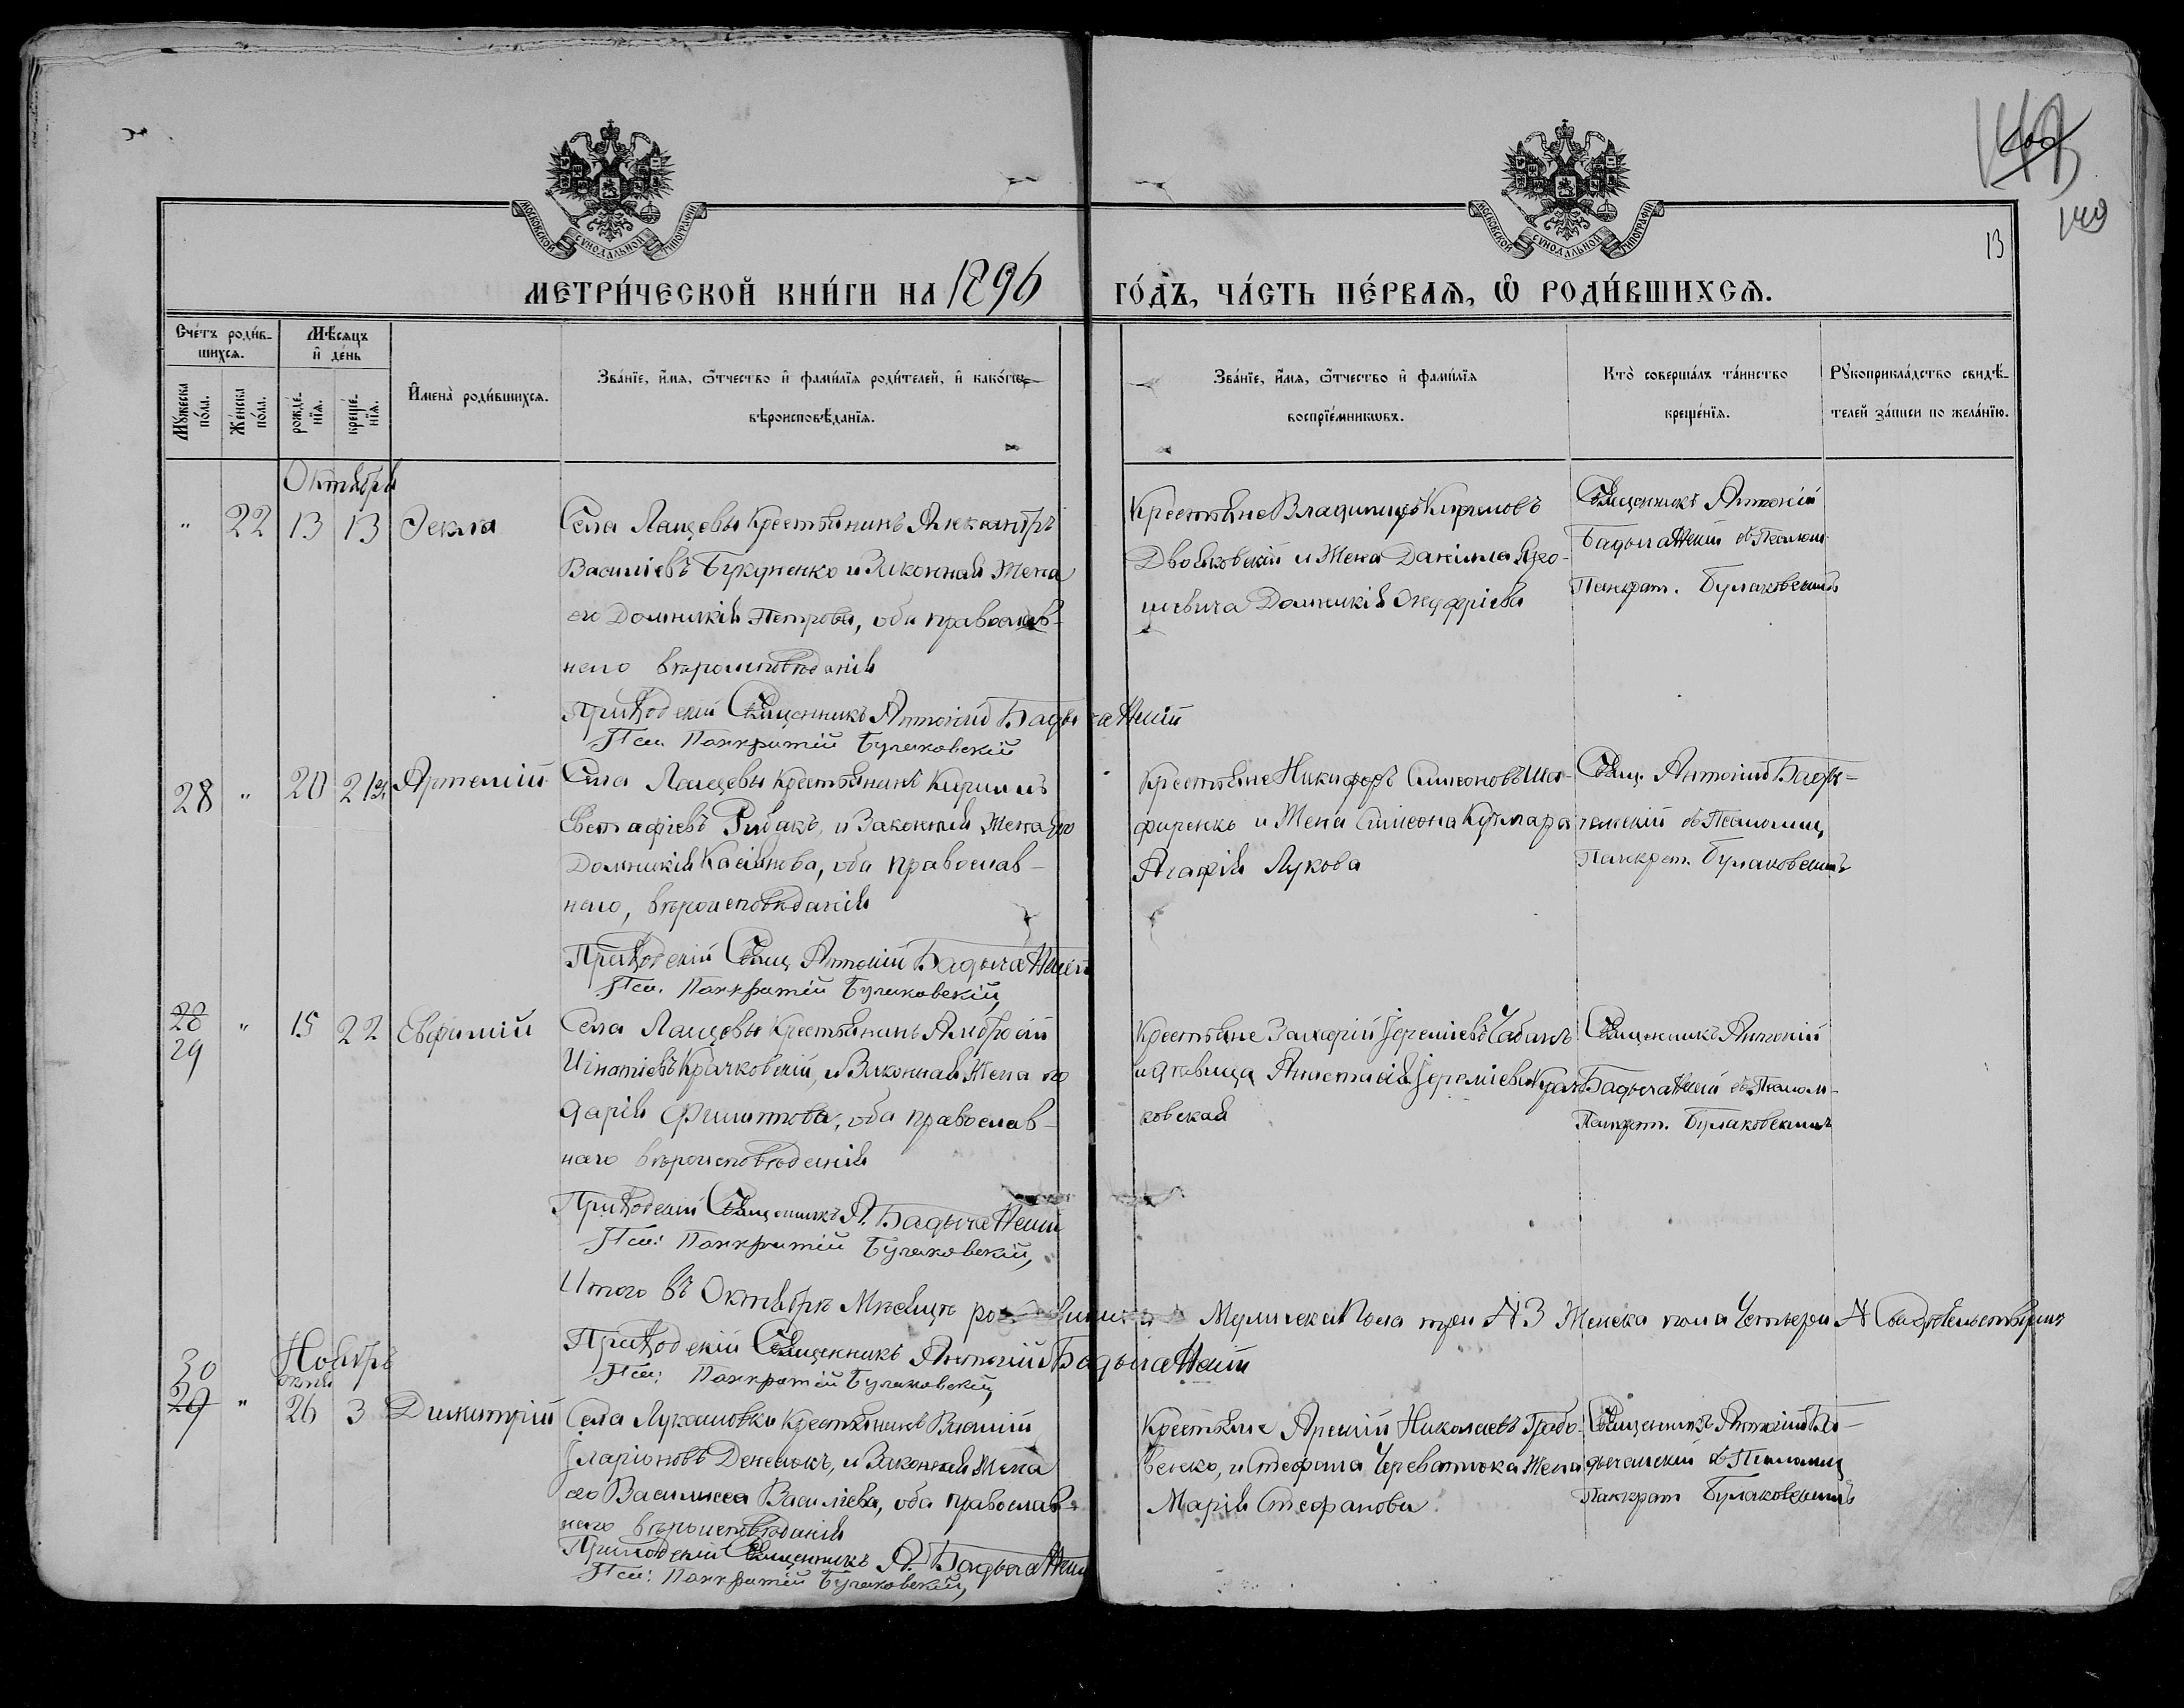 149
13
МОСКОВСКОЙ СѴНОДАЛЬНОЙ ТИПОГРАФІИ
МОСКОВСКОЙ СѴНОДАЛЬНОЙ ТИПОГРАФІИ
МЕТРИ́ЧЕСКОЙ КНИ́ГИ НА 1896 ГО́ДЪ, ЧА́СТЬ ПЕ́РВАѦ, Ѡ РОДИ́ВШИХСѦ.
Сче́тъ роди́в-
шихсѧ.
Мѣ́сѧцъ
и҆ де́нь
Мꙋ́жеска по́ла.
Же́нска по́ла.
рожде́-
нїѧ.
креще́-
нїѧ.
И҆мена̀ роди́вшихсѧ.
Зва́нїе, и҆́мѧ, ѻ҆́тчество и҆ фами́лїѧ роди́телей, и҆ како́гѡ
вѣроисповѣ́данїѧ.
Зва́нїе, и҆́мѧ, ѻ҆́тчество и҆ фами́лїѧ
воспрїе́мникѡвъ.
Кто̀ соверша́лъ та́инство
креще́нїѧ.
Рꙋкоприкла́дство свидѣ́-
телей за́писи по жела́нїю.
Октября
" 22 13 13 Ѳекла
Села Лащевы Крестьянинъ Александръ
Василіевъ Букуненко и Законная Жена
его Домникія Петрова, оба православ-
наго вѣроисповѣданія
Приходскій Священникъ Антоній Бадычанскій
Пса. Панкратій Булаковскій
Крестьяне Владиміръ Кириловъ
Двояковскій и Жена Даніила Яко-
Домникія Онуфріева
Священникъ Антоній
Бадычанскій съ Псалом.
Панкрат. Булаковскимъ
28 " 20 21 Артемій
Села Лащевы Крестьянинъ Кириллъ
Евстафіевъ Рыбакъ, и Законная Жена его
Домникія Касіянова, оба православ-
наго, вѣроисповѣданія
Приходскій Свящ Антоній Бадычанскій
Пса. Панкратій Булаковскій,
Крестьяне Никифоръ Симеоновъ Ша-
фиренко и Жена Симеона
Агафія Лукова
Свящ. Антоній Бады-
чанскій съ Псаломщ.
Панкрат. Булаковскимъ
28
29 " 15 22 Евфимій
Села Лащевы Крестьянинъ Амвросій
Игнатіевъ Крачковскій, и Законная Жена его
Дарія Филиппова, оба православ-
наго вѣроисповѣданія
Приходскій Священникъ А. Бадычанскій
Пса: Панкратій Булаковскій,
Крестьяне Захарій Іереміевъ Чабанъ
и девица Анастасія Іереміева Крач-
ковская
Священникъ Антоній
Бадычанскій съ Псалом-
Панкрат. Булаковскимъ
Итого въ Октябрѣ Мѣсяцѣ родившихся Мужеска Пола три № 3 Женска пола Четыре
Приходскій Священникъ Антоній Бадычанскій
Пса: Панкратій Булаковскій,
Ноябрь
30
29 " 26 3 Димитрій
Села Лукашовки Крестьянинъ Василій
Іларіоновъ и Законная Жена
его Василисса Василіева, оба православ-
наго вѣроисповѣданія
Приходскій Священникъ А. Бадычанскій
Пса: Панкратій Булаковскій,
Крестьяне Арсеній Николаевъ Грабо-
венско, и Стефана Череватюка Жена
Марія Стефанова
Священникъ Антоній Ба-
дычанскій съ Псаломщ
Панкрат Булаковскимъ